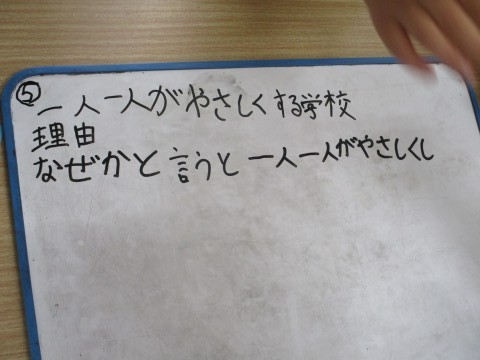 ⑤一人一人がやさしくする学校
理由
なぜかと言うと一人一人がやさしくし